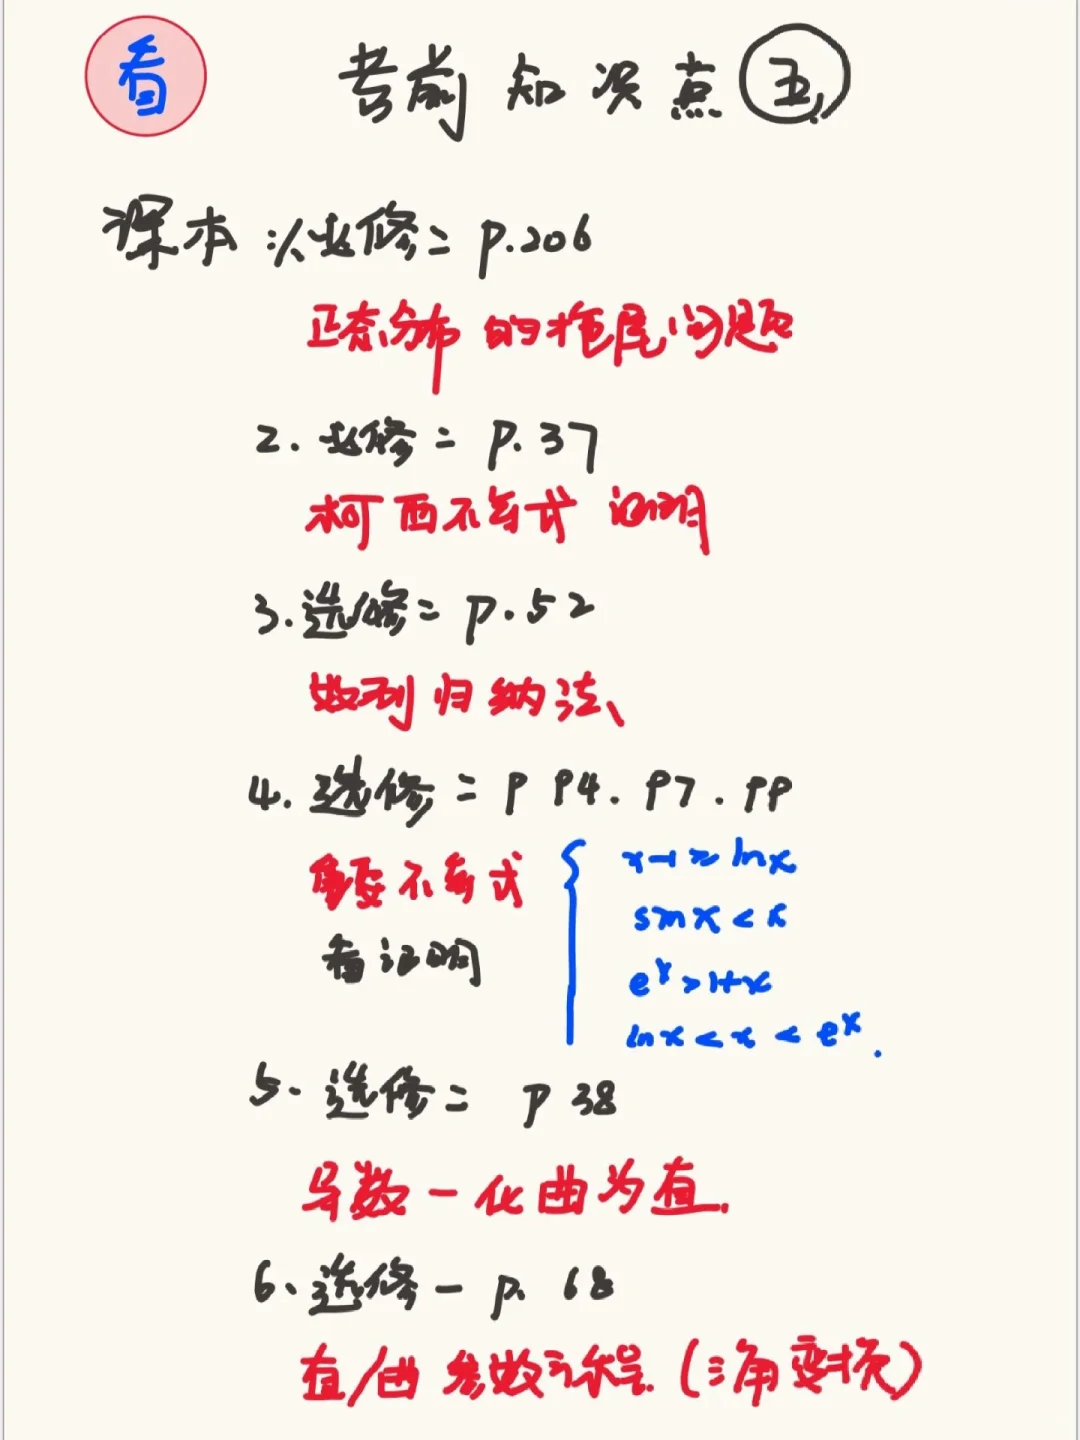 看
考前知识点 五
课本：1. 必修二 p.206
正态分布的推展问题
2. 必修二 p.37
柯西不等式 证明
3. 选修二 p.52
数列归纳法
4. 选修二 p 94. 97. 99
重要不等式
看证明
x-1≥lnx
sinx<x
eˣ>1+x
lnx<x<eˣ.
5. 选修二 p 38
导数-化曲为直.
6. 选修一 p. 68
直/曲 参数方程. (三角变换)